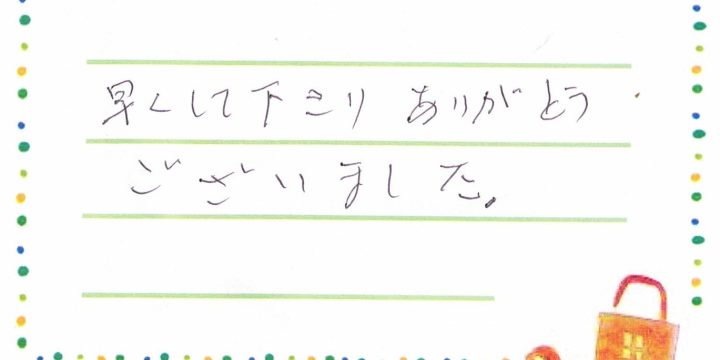 早くして下さり ありがとう
ございました。